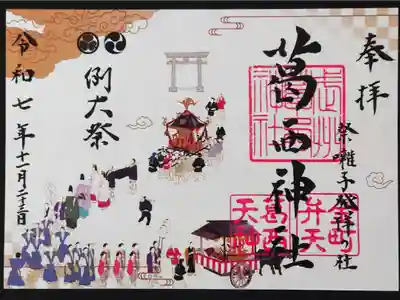 奉拝
祭囃子発祥の社
葛西神社
金町
弁天
葛西
天神
例大祭
令和七年十一月二十三日